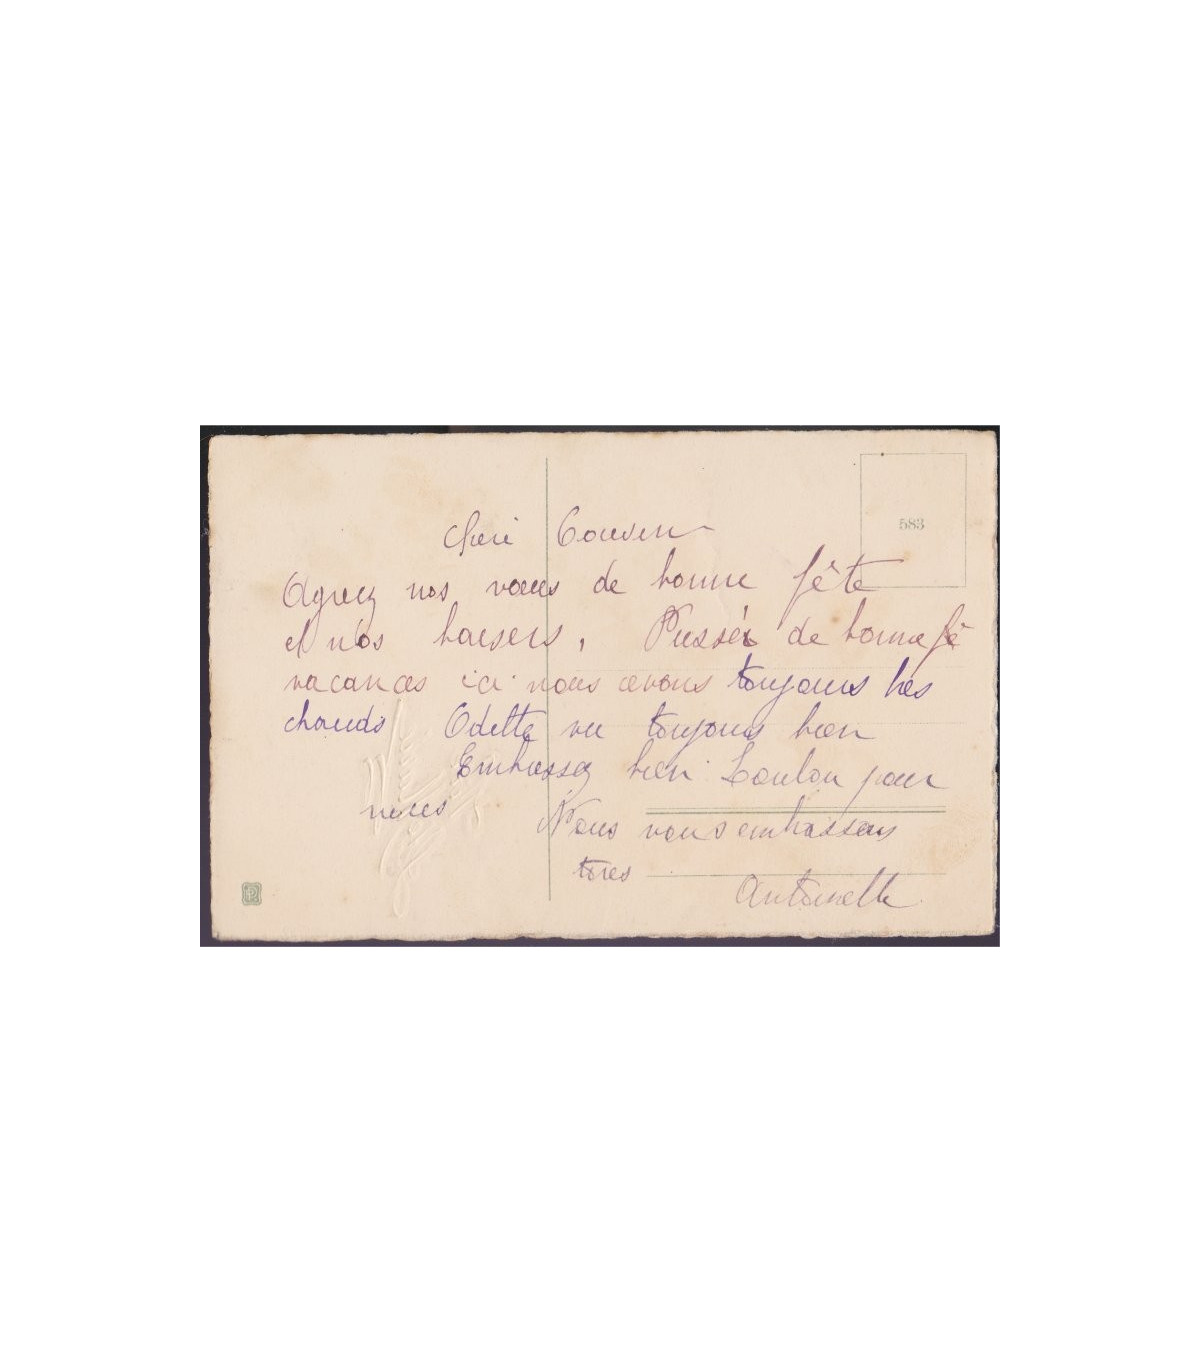 583
Cheri Cousin
Agreez nos vœus de bonne fête
et nos baisers, Pussér de bonne fê
vacances ici nous avons toujours tres
chauds Odette va toujours bien
Embrassez bien Loulou pour
nous Nous vous embrassons
tores
Antoinette